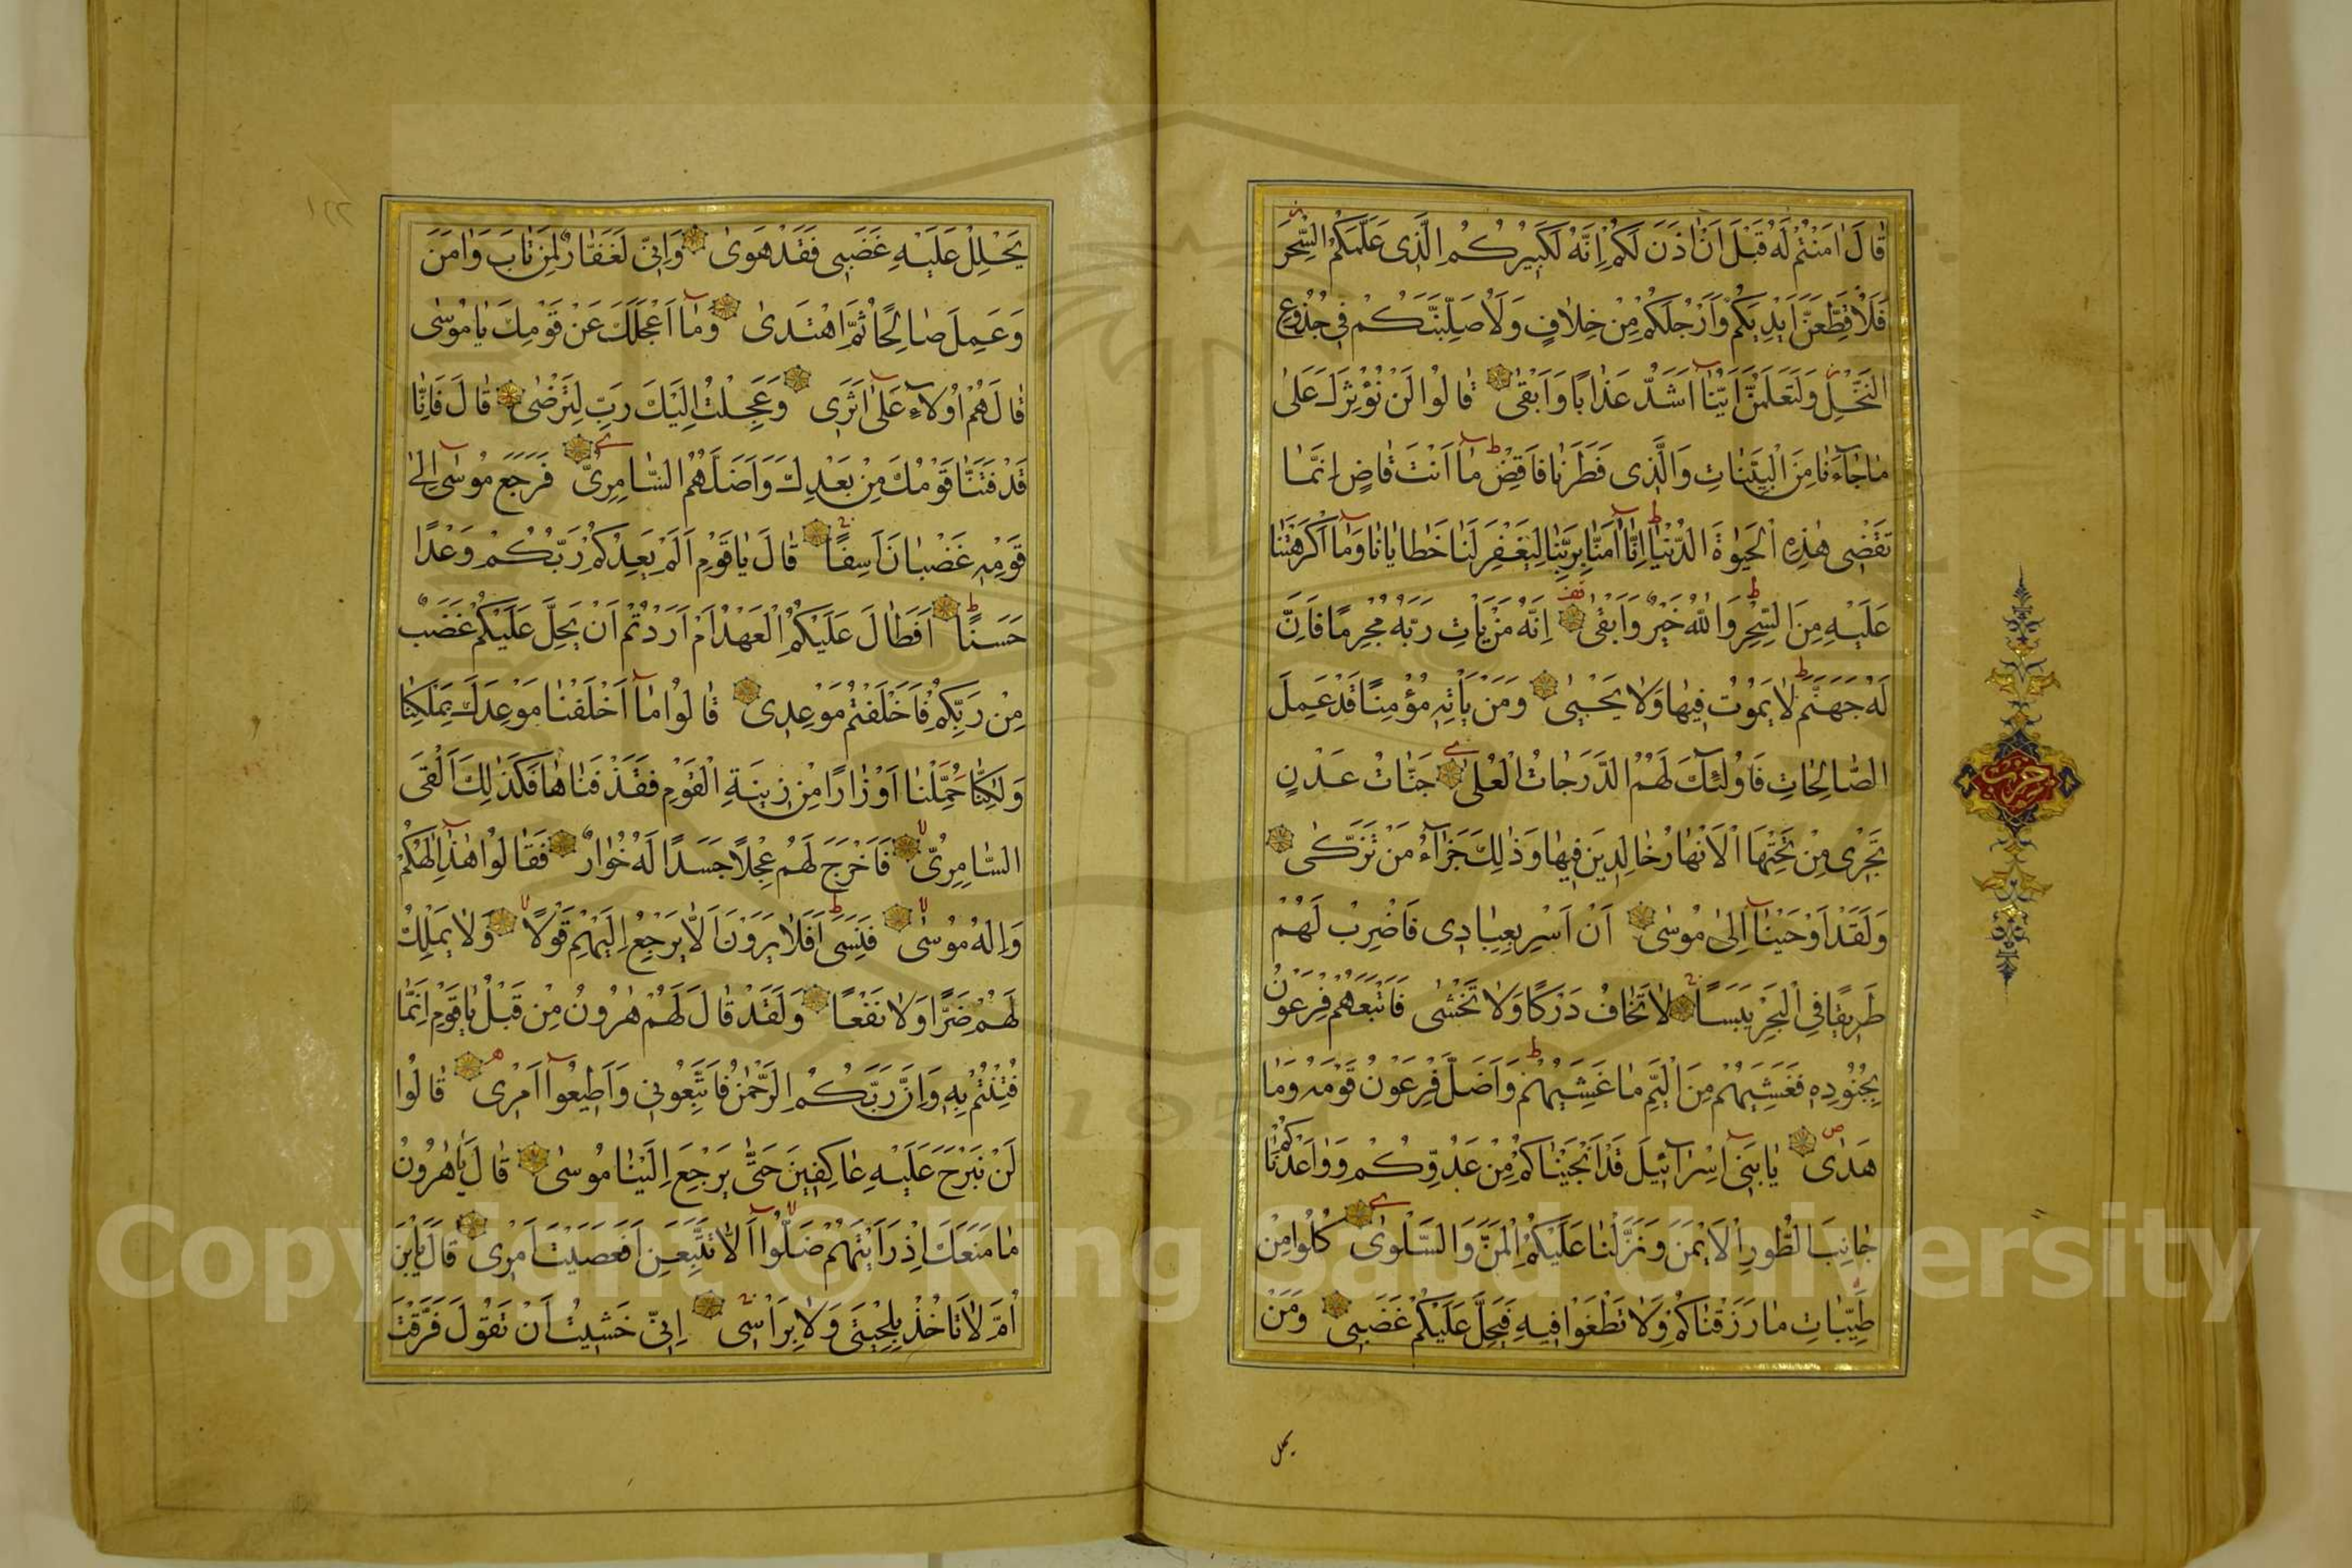 قَالَ اٰمَنْتُمْ لَهُ قَبْلَ اَنْ اٰذَنَ لَكُمْ اِنَّهُ لَكَبِيرُكُمُ الَّذِى عَلَّمَكُمُ السِّحْرَ
فَلَاُقَطِّعَنَّ اَيْدِيَكُمْ وَاَرْجُلَكُمْ مِنْ خِلَافٍ وَلَاُصَلِّبَنَّكُمْ فِى جُذُوعِ
النَّخْلِ وَلَتَعْلَمُنَّ اَيُّنَا اَشَدُّ عَذَابًا وَاَبْقٰى قَالُوا لَنْ نُؤْثِرَكَ عَلٰى
مَا جَآءَنَا مِنَ الْبَيِّنَاتِ وَالَّذِى فَطَرَنَا فَاقْضِ مَا اَنْتَ قَاضٍ اِنَّمَا
تَقْضِى هٰذِهِ الْحَيٰوةَ الدُّنْيَا اِنَّا اٰمَنَّا بِرَبِّنَا لِيَغْفِرَ لَنَا خَطَايَانَا وَمَا اَكْرَهْتَنَا
عَلَيْهِ مِنَ السِّحْرِ وَاللّٰهُ خَيْرٌ وَاَبْقٰى اِنَّهُ مَنْ يَاْتِ رَبَّهُ مُجْرِمًا فَاِنَّ
لَهُ جَهَنَّمَ لَا يَمُوتُ فِيهَا وَلَا يَحْيٰى وَمَنْ يَاْتِهِ مُؤْمِنًا قَدْ عَمِلَ
الصَّالِحَاتِ فَاُولٰئِكَ لَهُمُ الدَّرَجَاتُ الْعُلٰى جَنَّاتُ عَدْنٍ
تَجْرِى مِنْ تَحْتِهَا الْاَنْهَارُ خَالِدِينَ فِيهَا وَذٰلِكَ جَزَآءُ مَنْ تَزَكّٰى
وَلَقَدْ اَوْحَيْنَا اِلٰى مُوسٰى اَنْ اَسْرِ بِعِبَادِى فَاضْرِبْ لَهُمْ
طَرِيقًا فِى الْبَحْرِ يَبَسًا لَا تَخَافُ دَرَكًا وَلَا تَخْشٰى فَاَتْبَعَهُمْ فِرْعَوْنُ
بِجُنُودِهِ فَغَشِيَهُمْ مِنَ الْيَمِّ مَا غَشِيَهُمْ وَاَضَلَّ فِرْعَوْنُ قَوْمَهُ وَمَا
هَدٰى يَا بَنِى اِسْرَآئِيلَ قَدْ اَنْجَيْنَاكُمْ مِنْ عَدُوِّكُمْ وَوٰاعَدْنَاكُمْ
جَانِبَ الطُّورِ الْاَيْمَنَ وَنَزَّلْنَا عَلَيْكُمُ الْمَنَّ وَالسَّلْوٰى كُلُوا مِنْ
طَيِّبَاتِ مَا رَزَقْنَاكُمْ وَلَا تَطْغَوْا فِيهِ فَيَحِلَّ عَلَيْكُمْ غَضَبِى وَمَنْ
يحلل
حزب
يَحْلِلْ عَلَيْهِ غَضَبِى فَقَدْ هَوٰى وَاِنِّى لَغَفَّارٌ لِمَنْ تَابَ وَاٰمَنَ
وَعَمِلَ صَالِحًا ثُمَّ اهْتَدٰى وَمَا اَعْجَلَكَ عَنْ قَوْمِكَ يَا مُوسٰى
قَالَ هُمْ اُولَاءِ عَلٰى اَثَرِى وَعَجِلْتُ اِلَيْكَ رَبِّ لِتَرْضٰى قَالَ فَاِنَّا
قَدْ فَتَنَّا قَوْمَكَ مِنْ بَعْدِكَ وَاَضَلَّهُمُ السَّامِرِىُّ فَرَجَعَ مُوسٰى اِلٰى
قَوْمِهِ غَضْبَانَ اَسِفًا قَالَ يَا قَوْمِ اَلَمْ يَعِدْكُمْ رَبُّكُمْ وَعْدًا
حَسَنًا اَفَطَالَ عَلَيْكُمُ الْعَهْدُ اَمْ اَرَدْتُمْ اَنْ يَحِلَّ عَلَيْكُمْ غَضَبٌ
مِنْ رَبِّكُمْ فَاَخْلَفْتُمْ مَوْعِدِى قَالُوا مَا اَخْلَفْنَا مَوْعِدَكَ بِمَلْكِنَا
وَلٰكِنَّا حُمِّلْنَا اَوْزَارًا مِنْ زِينَةِ الْقَوْمِ فَقَذَفْنَاهَا فَكَذٰلِكَ اَلْقَى
السَّامِرِىُّ فَاَخْرَجَ لَهُمْ عِجْلًا جَسَدًا لَهُ خُوَارٌ فَقَالُوا هٰذَا اِلٰهُكُمْ
وَاِلٰهُ مُوسٰى فَنَسِىَ اَفَلَا يَرَوْنَ اَلَّا يَرْجِعُ اِلَيْهِمْ قَوْلًا وَلَا يَمْلِكُ
لَهُمْ ضَرًّا وَلَا نَفْعًا وَلَقَدْ قَالَ لَهُمْ هٰرُونُ مِنْ قَبْلُ يَا قَوْمِ اِنَّمَا
فُتِنْتُمْ بِهِ وَاِنَّ رَبَّكُمُ الرَّحْمٰنُ فَاتَّبِعُونِى وَاَطِيعُوا اَمْرِى قَالُوا
لَنْ نَبْرَحَ عَلَيْهِ عَاكِفِينَ حَتّٰى يَرْجِعَ اِلَيْنَا مُوسٰى قَالَ يَا هٰرُونُ
مَا مَنَعَكَ اِذْ رَاَيْتَهُمْ ضَلُّوا اَلَّا تَتَّبِعَنِ اَفَعَصَيْتَ اَمْرِى قَالَ يَا ابْنَ
اُمَّ لَا تَاْخُذْ بِلِحْيَتِى وَلَا بِرَاْسِى اِنِّى خَشِيتُ اَنْ تَقُولَ فَرَّقْتَ
Copyright © King Saud University